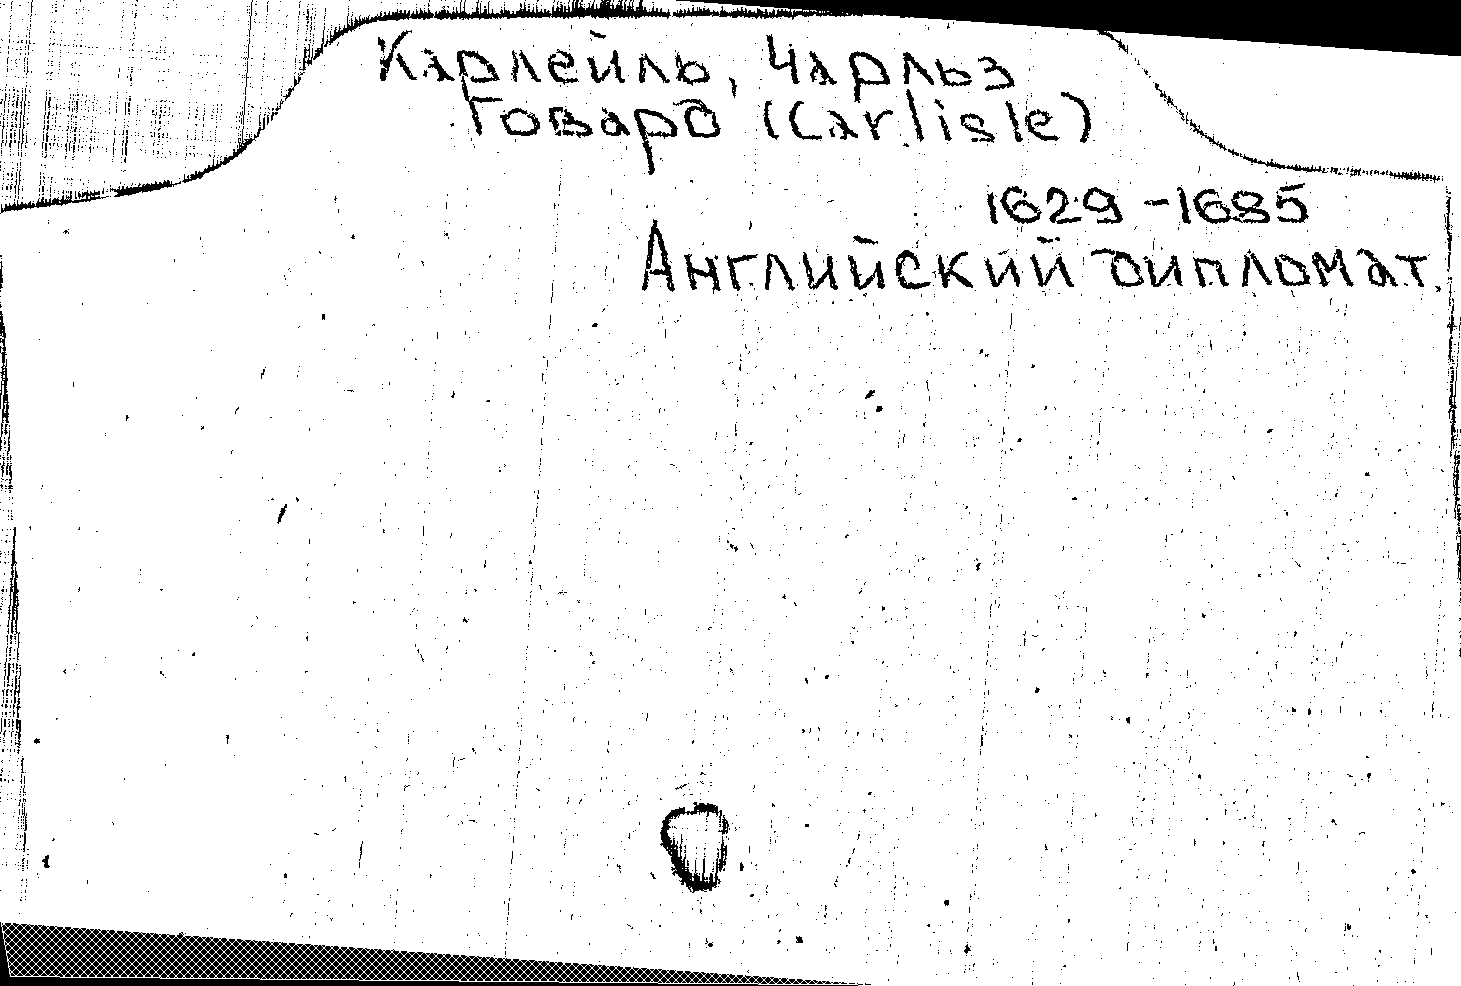 Карлейль, Чарльз
Говард (Carlisle)
1629-1685
Английский дипломат.